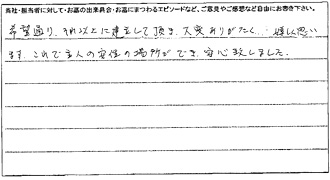 当社・担当者に対して・お墓の出来具合・お墓にまつわるエピソードなど、ご意見やご感想など自由にお書き下さい。
希望通り、それ以上に建立して頂き、大変ありがたく、嬉しく思い
ます。これで主人の安住の場所ができ、安心致しました。